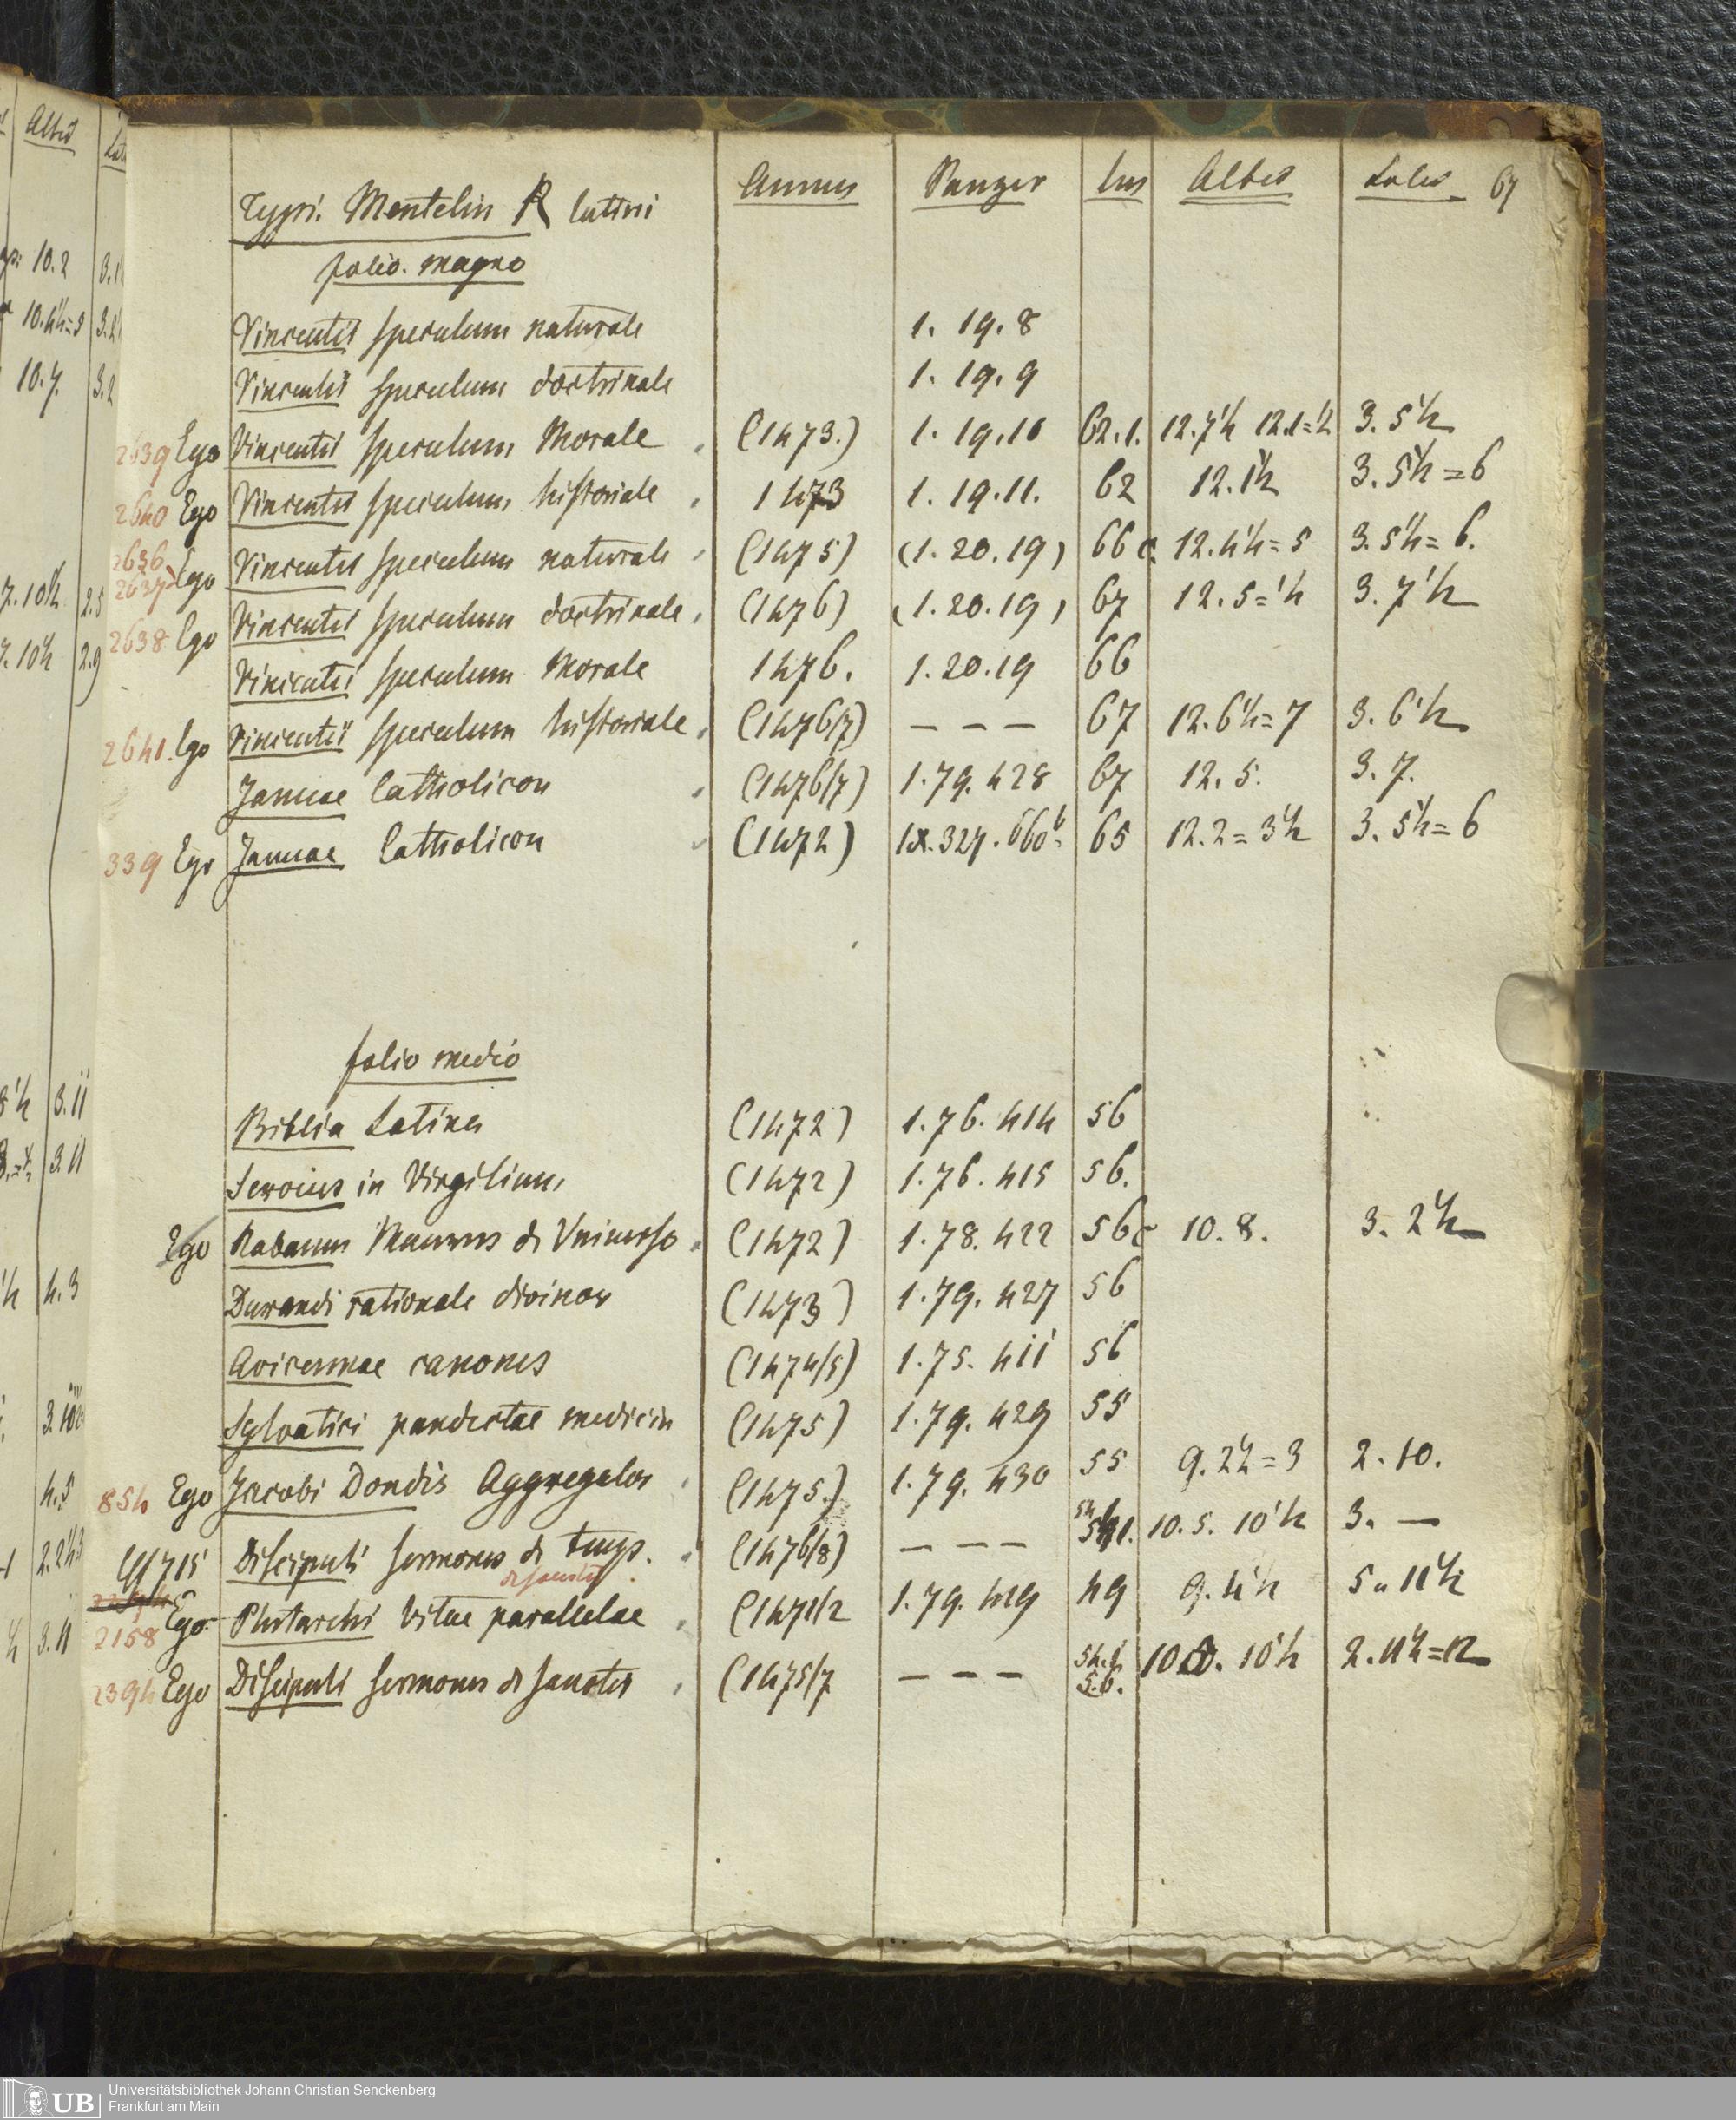 Altes
10.2
10.4½=5
10.7.
7.10½
7.10½ 2.9
3.11
3.11
4.3
4.5
3.11
Typi. Mentelin R latini Annus Panzer lin Altes Lates 67
folio. magno
Vincentii speculum naturale 1. 19. 8
Vincentii speculum doctrinale 1. 19. 9
2639 Ego Vincentii speculum Morale (1473.) 1. 19. 10 62.1. 12.7½ 12.1=½ 3. 5½
2640 Ego Vincentii speculum historiale 1473 1. 19. 11. 62 12.1½ 3. 5½=6
2636 2637 Ego Vincentii speculum naturale (1475) (1. 20. 19) 66 c. 12.4½=5 3. 5½=6.
2638 Ego Vincentii speculum doctrinale (1476) (1. 20. 19) 67 12. 5=½ 3. 7½
Vincentii speculum Morale 1476. 1. 20. 19 66
2641. Ego Vincentii speculum historiale (1476/7) — — — 67 12. 6½=7 3. 6½
Januae Catholicon (1476/7) 1. 79. 428 67 12. 5. 3. 7.
339 Ego Januae Catholicon (1472) IX. 327. 660b. 65 12. 2=3½ 3. 5½=6
folio medio
Biblia Latina (1472) 1. 76. 414 56
Servius in Virgilium (1472) 1. 76. 415 56.
Ego Rabanus Maurus de Universo (1472) 1. 78. 422 56 c 10. 8. 3. 2½
Durandi rationale divinor (1473) 1. 79. 427 56
Avicennae canones (1474/5) 1. 75. 411 56
Sylvatici pandectae medicin (1475) 1. 79. 429 55
854 Ego Jacobi Dondis Aggregator (1475.) 1. 79. 430 55 9. 2½=3 2. 10.
715 Discipuli sermones de temp. (1476/8) — — — 54 10. 5. 10½ 3. —
de sanctis
2158 Ego Plutarchi Vitae parallelae (1471/2 1. 79. 419 49 9. 4½ 5. 11½
2394 Ego Discipuli sermones de sanctis (1475/7 — — — 54. 56. 10. 10½ 2. 11½=12
UB Universitätsbibliothek Johann Christian Senckenberg
Frankfurt am Main